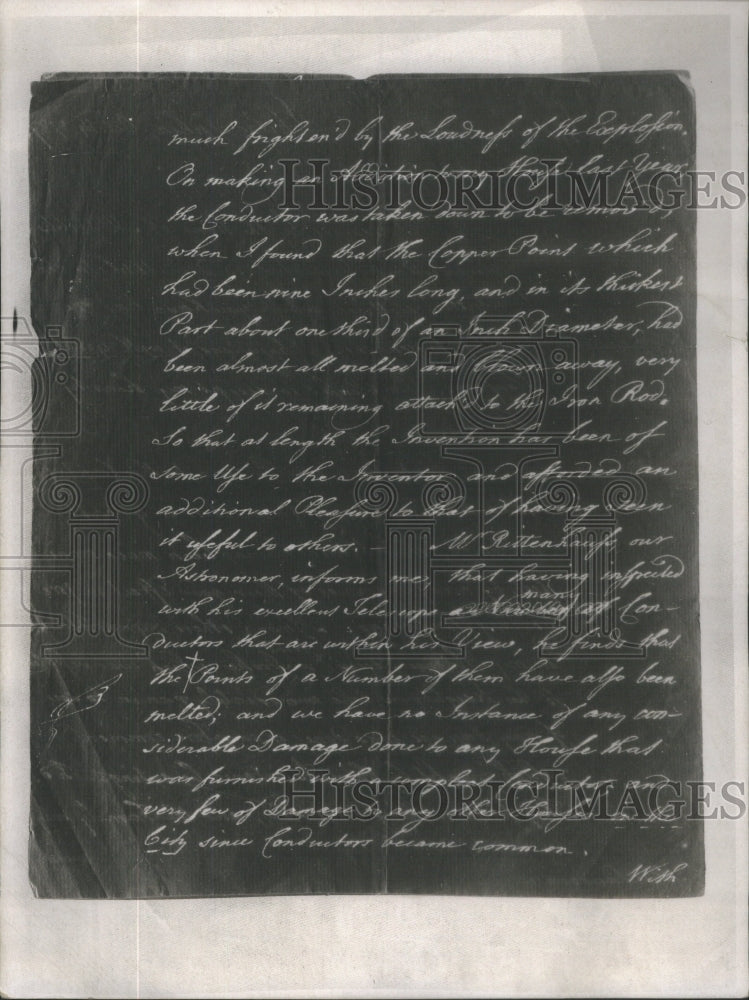 much frighten'd by the Loudness of the Explosion.
On making an Addition to my House last Year
the Conductor was taken down to be remov'd,
when I found that the Copper Point which
had been nine Inches long, and in its thickest
Part about one third of an Inch Diameter, had
been almost all melted and blown away, very
little of it remaining attach'd to the Iron Rod.
So that at length the Invention has been of
some Use to the Inventor and afforded an
additional Pleasure to that of having seen
it useful to others. — Mr Rittenhouse, our
Astronomer, informs me, that having inspected
many
with his excellent Telescope of Con-
ductors that are within his View, he finds that
the Points of a Number of them have also been
melted; and we have no Instance of any con-
siderable Damage done to any House that
was furnished with a compleat Conductor; and
very few of Damage to any other House in the
City since Conductors became common.
With
HISTORIC IMAGES
HISTORIC IMAGES